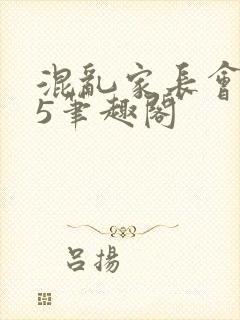 混亂家長會
5筆趣閣
呂揚